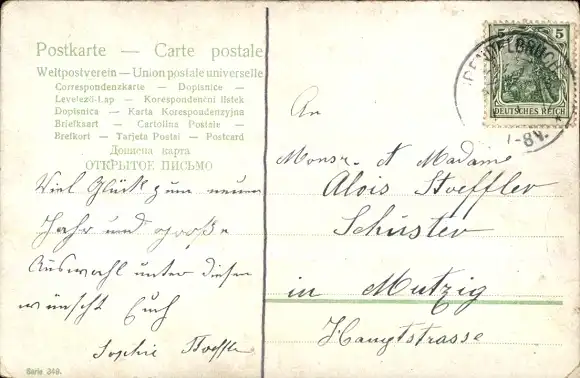 Postkarte — Carte postale
Weltpostverein — Union postale universelle
Correspondenzkarte — Dopisnice —
Levelező-Lap — Korespondenční lístek
Dopisnica — Karta Korespondenzyjna
Briefkaart — Cartolina Postale —
Brefkort — Tarjeta Postal — Postcard
Дописна карта
ОТКРЫТОЕ ПИСЬМО
Viel Glück zum neuen
Jahr und große
Auswahl unter diesen
wünscht Euch
Sophie Stoeffler
Serie 349.
5 5
DEUTSCHES REICH
7-8V.
An
Monsr et Madame
Alois Stoeffler
Schuster
in Mutzig
Hauptstrasse